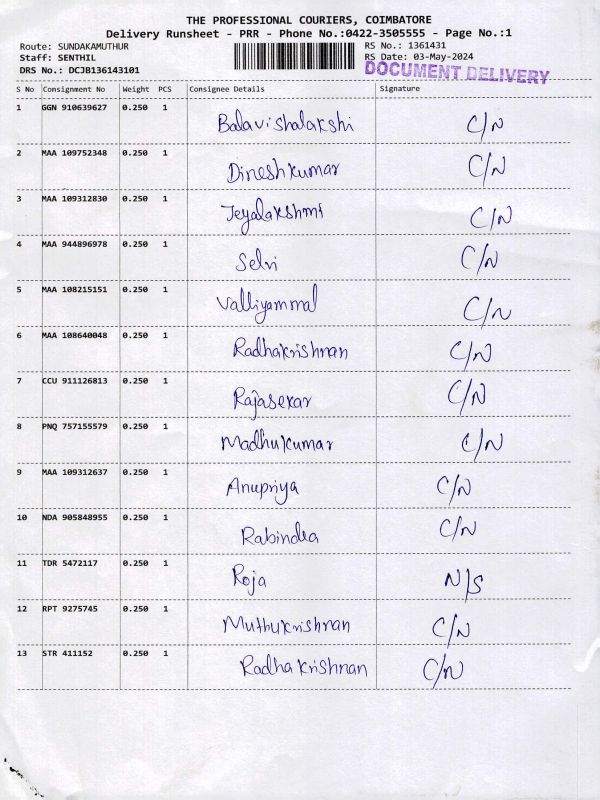 THE PROFESSIONAL COURIERS, COIMBATORE
Delivery Runsheet - PRR - Phone No.:0422-3505555 - Page No.:1
Route: SUNDAKAMUTHUR RS No.: 1361431
Staff: SENTHIL RS Date: 03-May-2024
DRS No.: DCJB136143101 DOCUMENT DELIVERY
S No Consignment No Weight PCS Consignee Details Signature
1 GGN 910639627 0.250 1 Balavishalakshi C/N
2 MAA 109752348 0.250 1 Dineshkumar C/N
3 MAA 109312830 0.250 1 Jeyalakshmi C/N
4 MAA 944896978 0.250 1 Selvi C/N
5 MAA 108215151 0.250 1 Valliyammal C/N
6 MAA 108640048 0.250 1 Radhakrishnan C/N
7 CCU 911126813 0.250 1 Rajasekar C/N
8 PNQ 757155579 0.250 1 Madhukumar C/N
9 MAA 109312637 0.250 1 Anupriya C/N
10 NDA 905848955 0.250 1 Rabindra C/N
11 TDR 5472117 0.250 1 Roja N/S
12 RPT 9275745 0.250 1 Muthukrishnan C/N
13 STR 411152 0.250 1 Radha krishnan C/N